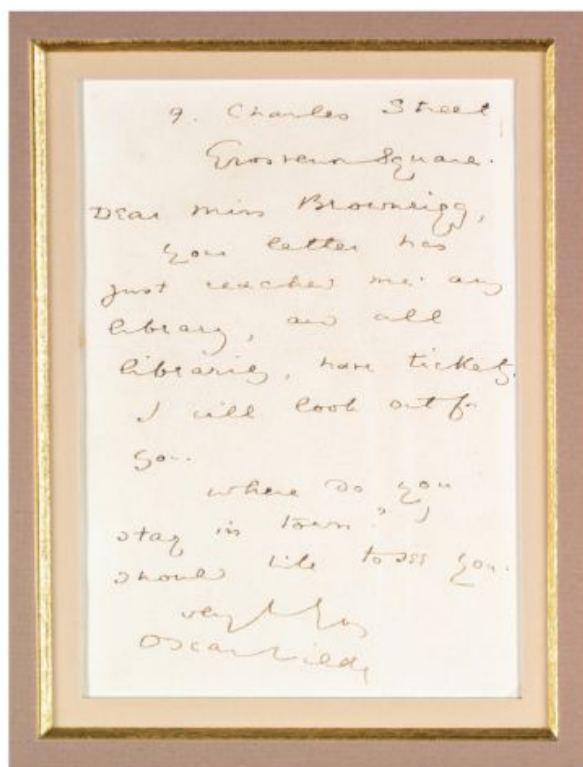 9. Charles Street
Grosvenor Square.
Dear Miss Browneigg,
your letter has
just reached me: any
library, and all
libraries, have tickets.
I will look out for
you.
where do you
stay in town? I
should like to see you.
very
Oscar Wilde